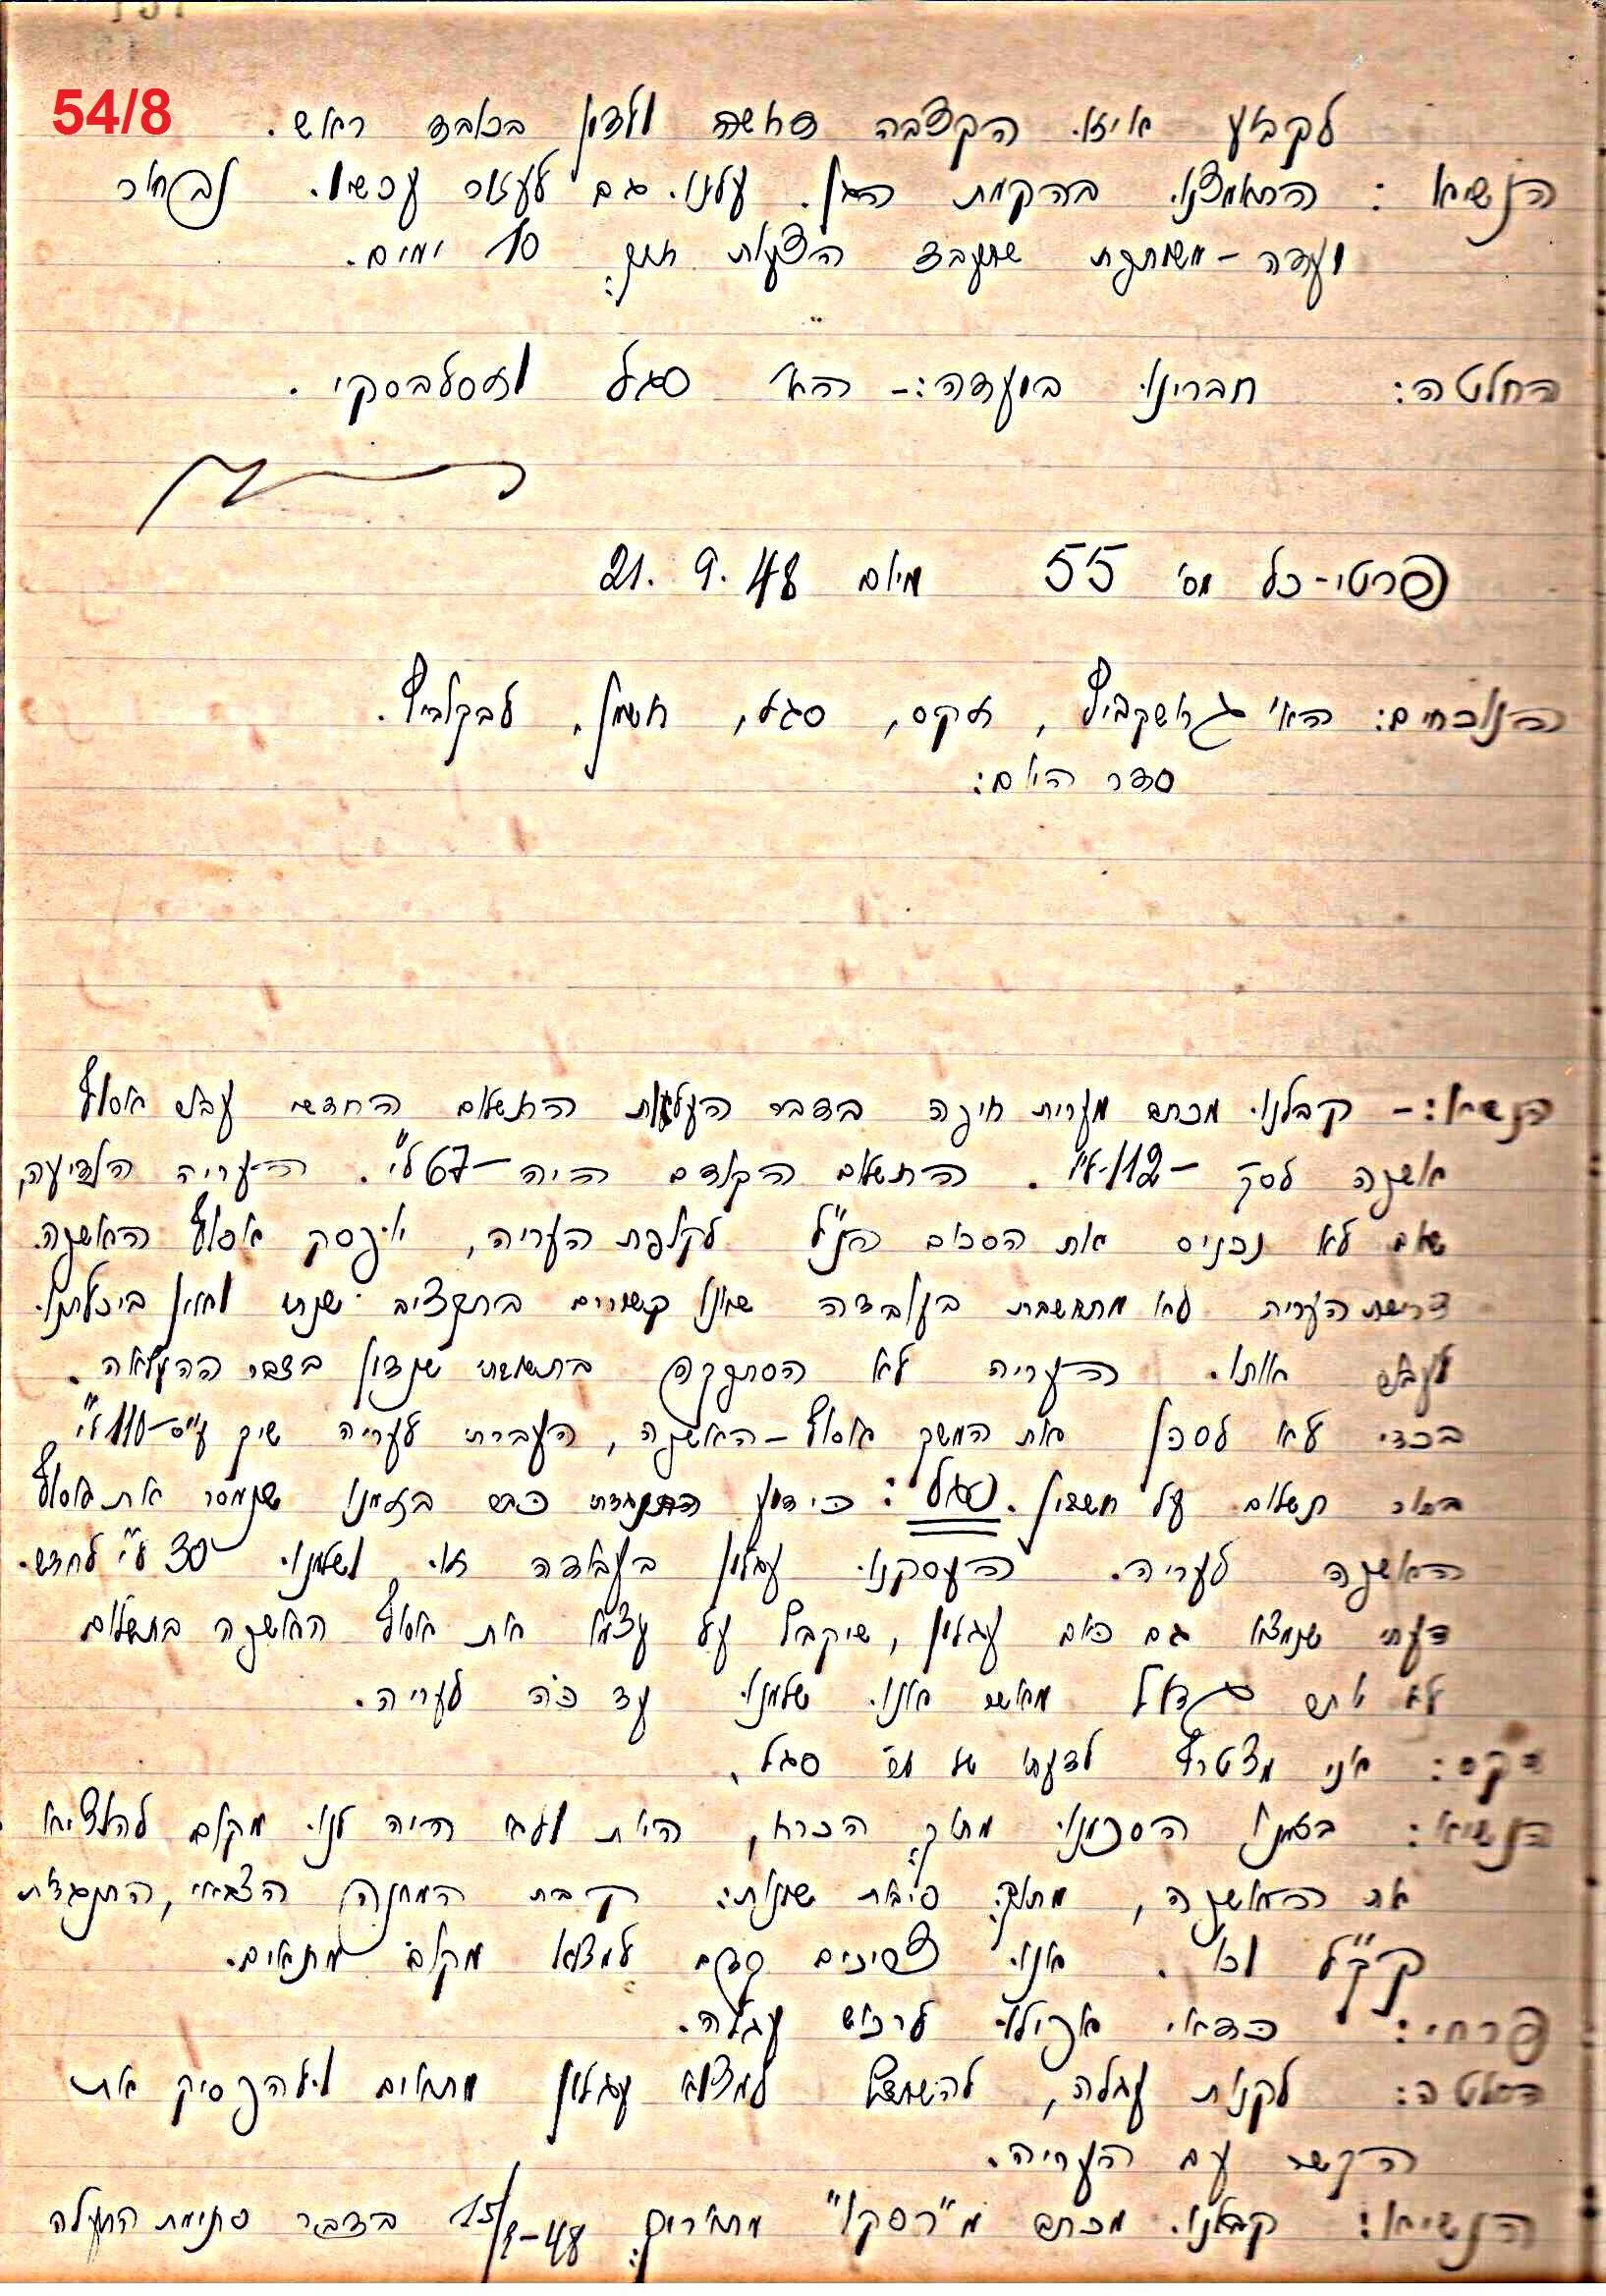 54/8
לקבוע איזו הקצבה חדשה ולדון בכובד ראש.
הנשיא: התאמצנו בהקמת הגן. עלינו גם לעזור עכשיו. לבחור
ועדה-משותפת שתעבד הצעות תוך 10 ימים.
החלטה: חברינו בועדה:- ה"ה סגל וזסלבסקי.
פרטי-כל מס' 55 מיום 21.9.48
הנוכחים: ה"ה גרשקביץ, זקס, סגל, חשמן,
סדר היום:
הנשיא:- קבלנו מכתב מערית חיפה בדבר העלאת התשלום החדשי עבור אסוף
אשפה לסך -112 לי". התשלום הקודם היה -67 לי". העריה הודיעה,
שאם לא נכניס את הסכום הנ"ל לקופת העריה, יופסק אסוף האשפה.
דרישת העריה לא מתחשבת בעובדה שאנו קשורים בתקציב שנתי ואין ביכולתנו
לעבור אותו. העריה לא הסתפקה בתשובתי שנדון בדבר ההעלאה.
בכדי לא לסכן את המשך אסוף-האשפה, העברתי לעריה שיק ע"ס -110 לי"
בתור תשלום על חשבון. סגל: כידוע התנגדתי כבר בזמנו שנמסר את אסוף
האשפה לעריה. העסקנו עגלון בעבודה זו ושלמנו 30 לי" לחדש.
דעתי שנמצא גם כיום עגלון, שיקבל על עצמו את אסוף האשפה בתשלום
לא יותר גדול מאשר אנו שלמנו עד כה לעריה.
זקס: אני מצטרף לדעתו של מר סגל.
הנשיא: בזמנו הסכמנו מתוך הכרח, היות ולא היה לנו מקום להוציא
את האשפה, מתוך סיבות שונות: קרבת המחנה הצבאי, התנגדות
קק"ל וכו'. אנו צריכים קודם למצוא מקום מתאים.
פרחי: כדאי אפילו לרכוש עגלה.
החלטה: לקנות עגלה, להשתדל למצוא עגלון מתאים ולהפסיק את
הקשר עם העריה.
הנשיא: קבלנו מכתב מ"רסקו" מתאריך 15/9-48 בדבר סתימת התעלה